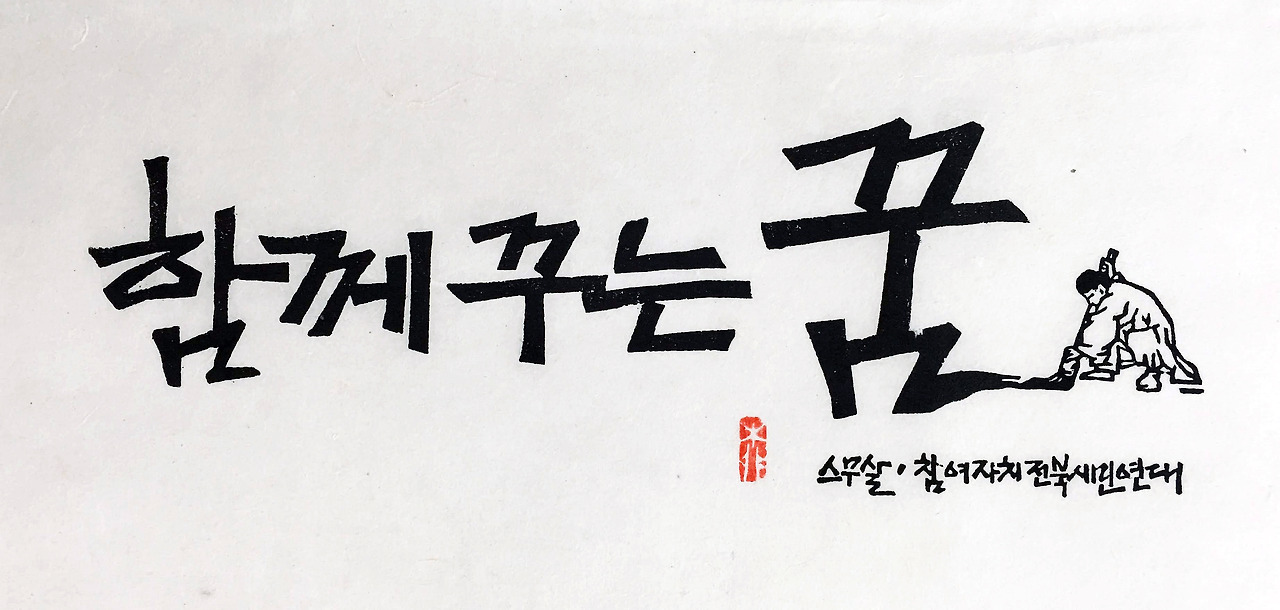 함께 꾸는 꿈
스무살 · 참여자치전북시민연대